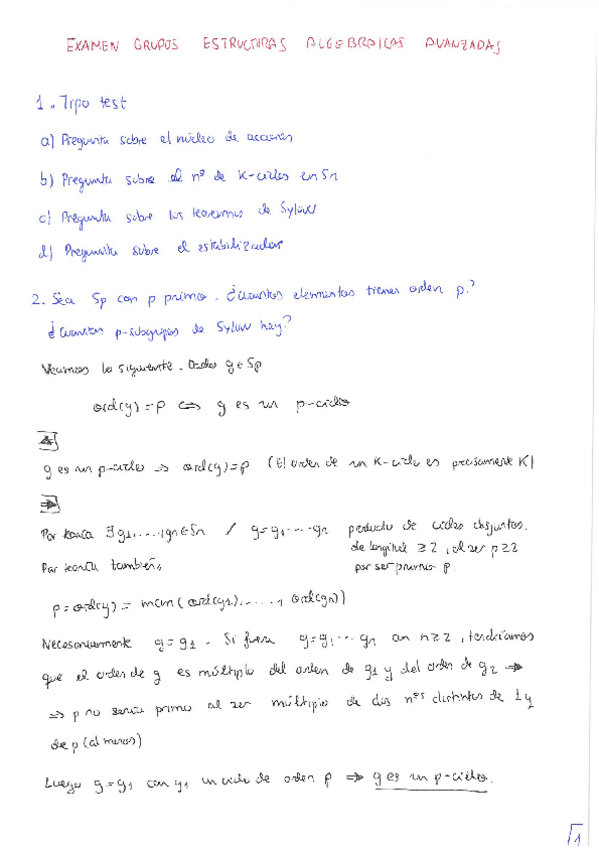 EXAMEN GRUPOS ESTRUCTURAS ALGEBRAICAS AVANZADAS
1. Tipo test
a) Pregunta sobre el núcleo de acciones
b) Pregunta sobre el nº de K-ciclos en Sn
c) Pregunta sobre los teoremas de Sylow
d) Pregunta sobre el estabilizador
2. Sea Sp con p primo. ¿Cuántos elementos tienen orden p?
¿Cuántos p-subgrupos de Sylow hay?
Veamos lo siguiente. Dado g∈Sp
ord(g)=p ⇔ g es un p-ciclo
⇐
g es un p-ciclo ⇒ ord(g)=p (El orden de un K-ciclo es precisamente K)
⇒
Por teoría ∃g1,....,gn∈Sn / g=g1....gn producto de ciclos disjuntos.
de longitud ≥2, al ser p≥2
Por teoría también, por ser primo p.
p=ord(g)=mcm(ord(g1),....., ord(gn))
Necesariamente g=g1. Si fuera g=g1...gn con n≥2, tendríamos
que el orden de g es múltiplo del orden de g1 y del orden de g2 ⇒
⇒ p no sería primo al ser múltiplo de dos nºs distintos de 1 y
de p (al menos)
Luego g=g1 con g1 un ciclo de orden p ⇒ g es un p-ciclo.
1